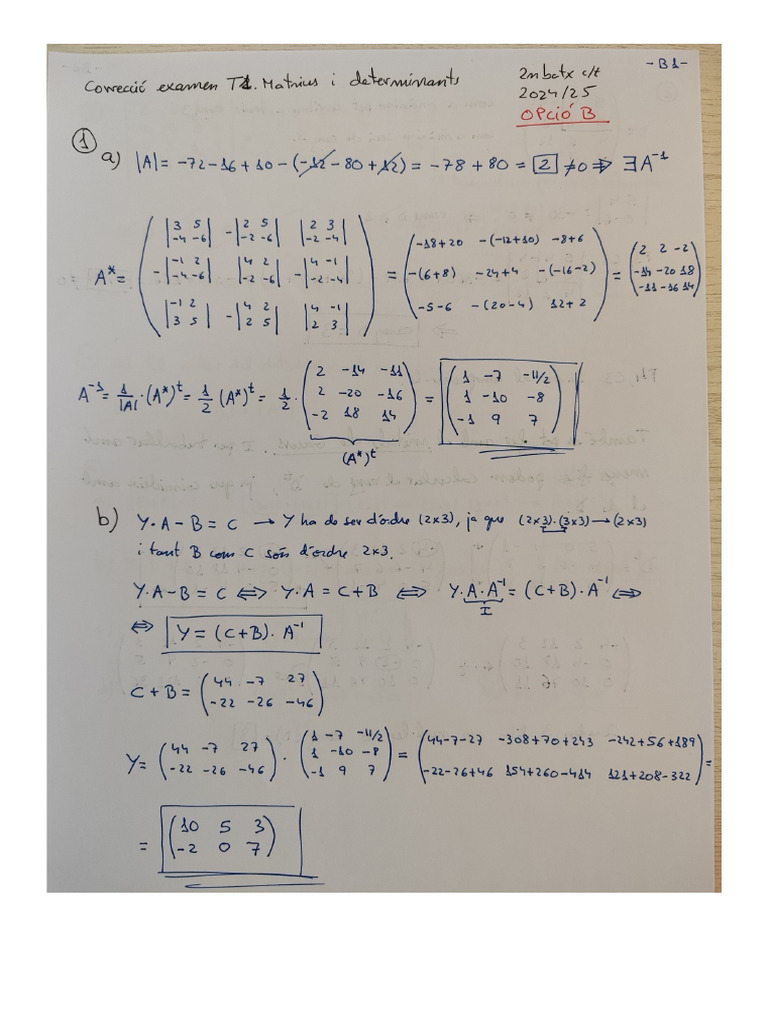 Correcció examen T1. Matrius i determinants
2n batx c/t
2024/25
OPCIÓ B
-B1-
1
a) |A| = -72-16+10-(-12-80+12) = -78+80 = 2 ≠0 ⇒ ∃A⁻¹
A* = ( |3 5; -4 -6| -|2 5; -2 -6| |2 3; -2 -4| ; -|-1 2; -4 -6| |4 2; -2 -6| -|4 -1; -2 -4| ; |-1 2; 3 5| -|4 2; 2 5| |4 -1; 2 3| ) = ( -18+20 -(-12+10) -8+6 ; -(6+8) -24+4 -(-16-2) ; -5-6 -(20-4) 12+2 ) = ( 2 2 -2 ; -14 -20 18 ; -11 -16 14 )
A⁻¹ = 1/|A| · (A*)ᵗ = 1/2 (A*)ᵗ = 1/2 · ( 2 -14 -11 ; 2 -20 -16 ; -2 18 14 ) = ( 1 -7 -11/2 ; 1 -10 -8 ; -1 9 7 )
(A*)ᵗ
b) Y·A-B = C → Y ha de ser d'ordre (2x3), ja que (2x3)·(3x3)→(2x3)
i tant B com C són d'ordre 2x3.
Y·A-B = C ⇔ Y·A = C+B ⇔ Y·A·A⁻¹ = (C+B)·A⁻¹ ⇔
I
⇔ Y = (C+B)·A⁻¹
C+B = ( 44 -7 27 ; -22 -26 -46 )
Y = ( 44 -7 27 ; -22 -26 -46 ) · ( 1 -7 -11/2 ; 1 -10 -8 ; -1 9 7 ) = ( 44-7-27 -308+70+243 -242+56+189 ; -22-26+46 154+260-414 121+208-322 ) =
= ( 10 5 3 ; -2 0 7 )